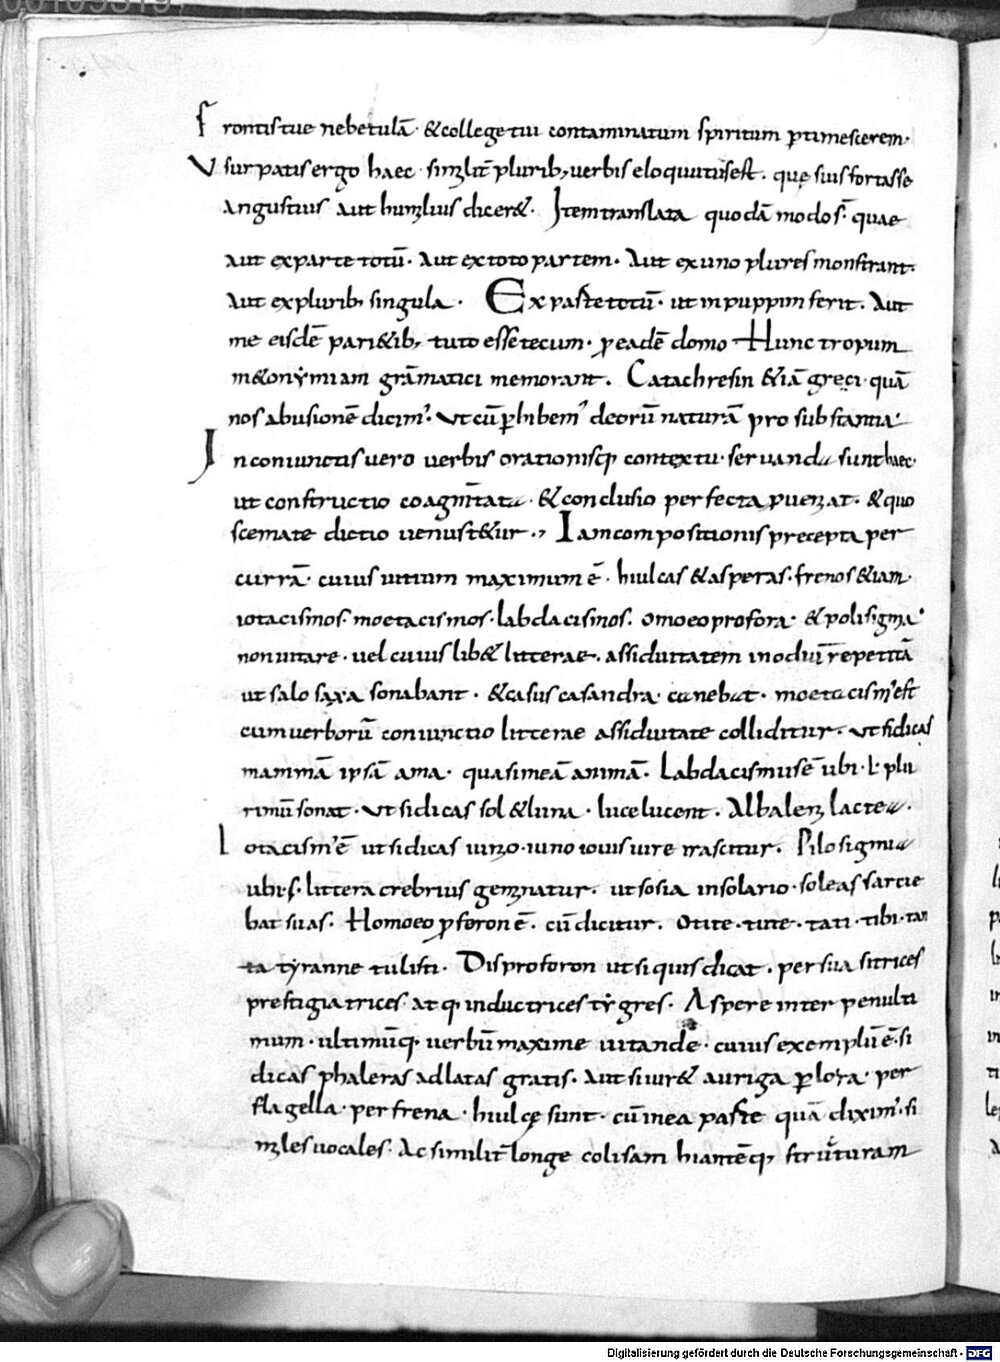 00109319
frontis tue nebetulā· & collegetiu contaminatum spiritum ptimescerem·
Vsurpatis ergo haec· similit̄ plurib; uerbis eloquutus est. quę suis fortasse
angustius aut humilius dicer&· Item translata quodā modo s̄· quae
aut ex parte totū· Aut ex toto partem· Aut ex uno plures monstrant·
Aut ex plurib; singula· Ex parte totū· ut in puppim ferit. Aut
me eisdē pari&ib; tuto esse tecum· p eadē domo Hunc tropum
m&onẏmiam grāmatici memorant. Catachresin &iā greci· quā
nos abusionē dicim'. Vt cū phibem' deorū naturā pro substantia·
In coniunctis uero uerbis orationisq; contextu· seruanda sunt haec·
ut constructio coagm̄tata· & conclusio perfecta pueniat. & quo
scemate dictio uenust&ur., Iam compositionis precepta per
currā· cuius uitium maximum ē· hiulcas & asperas· frenos &iam·
iotacismos· moetacismos· labdacismos. omoeoprofora· & polisigma·
non uitare· uel cuius lib& litterae. assiduitatem in odiū repetitā
ut salo saxa sonabant· & casus casandra canebat· moetacism' est
cum uerborū coniunctio litterae assiduitate colliditur· ut si dicas
mammā ipsā ama· quasi meā animā· Labdacismus ē ubi· L· plu
rimū sonat· Vt si dicas sol & luna· luce lucent. Alba leni lactea·
Iotacism' ē ut si dicas iunio· iuno iouis iure irascitur. Pilosigma
ubi· S· littera crebrius geminatur. ut sosia in solario· soleas sarcie
bat suas· Homoeo pforon ē· cū dicitur. O tite· tute· tati· tibi· tan
ta tẏranne tulisti· Disproforon ut si quis dicat· persuasitrices
prestigiatrices· atq· inductrices tẏgres· Aspere inter penulti
mum· ultimūq· uerbū maxime uitande· cuius exemplū ē· si
dicas phaleras adlatas gratis· Aut si iur& auriga p lora· per
flagella· per frena· hiulcę sunt· cū in ea parte quā dixim'· si
miles uocales· Ac similit̄ longe colisam hiantēq; structuram
Digitalisierung gefördert durch die Deutsche Forschungsgemeinschaft - DFG